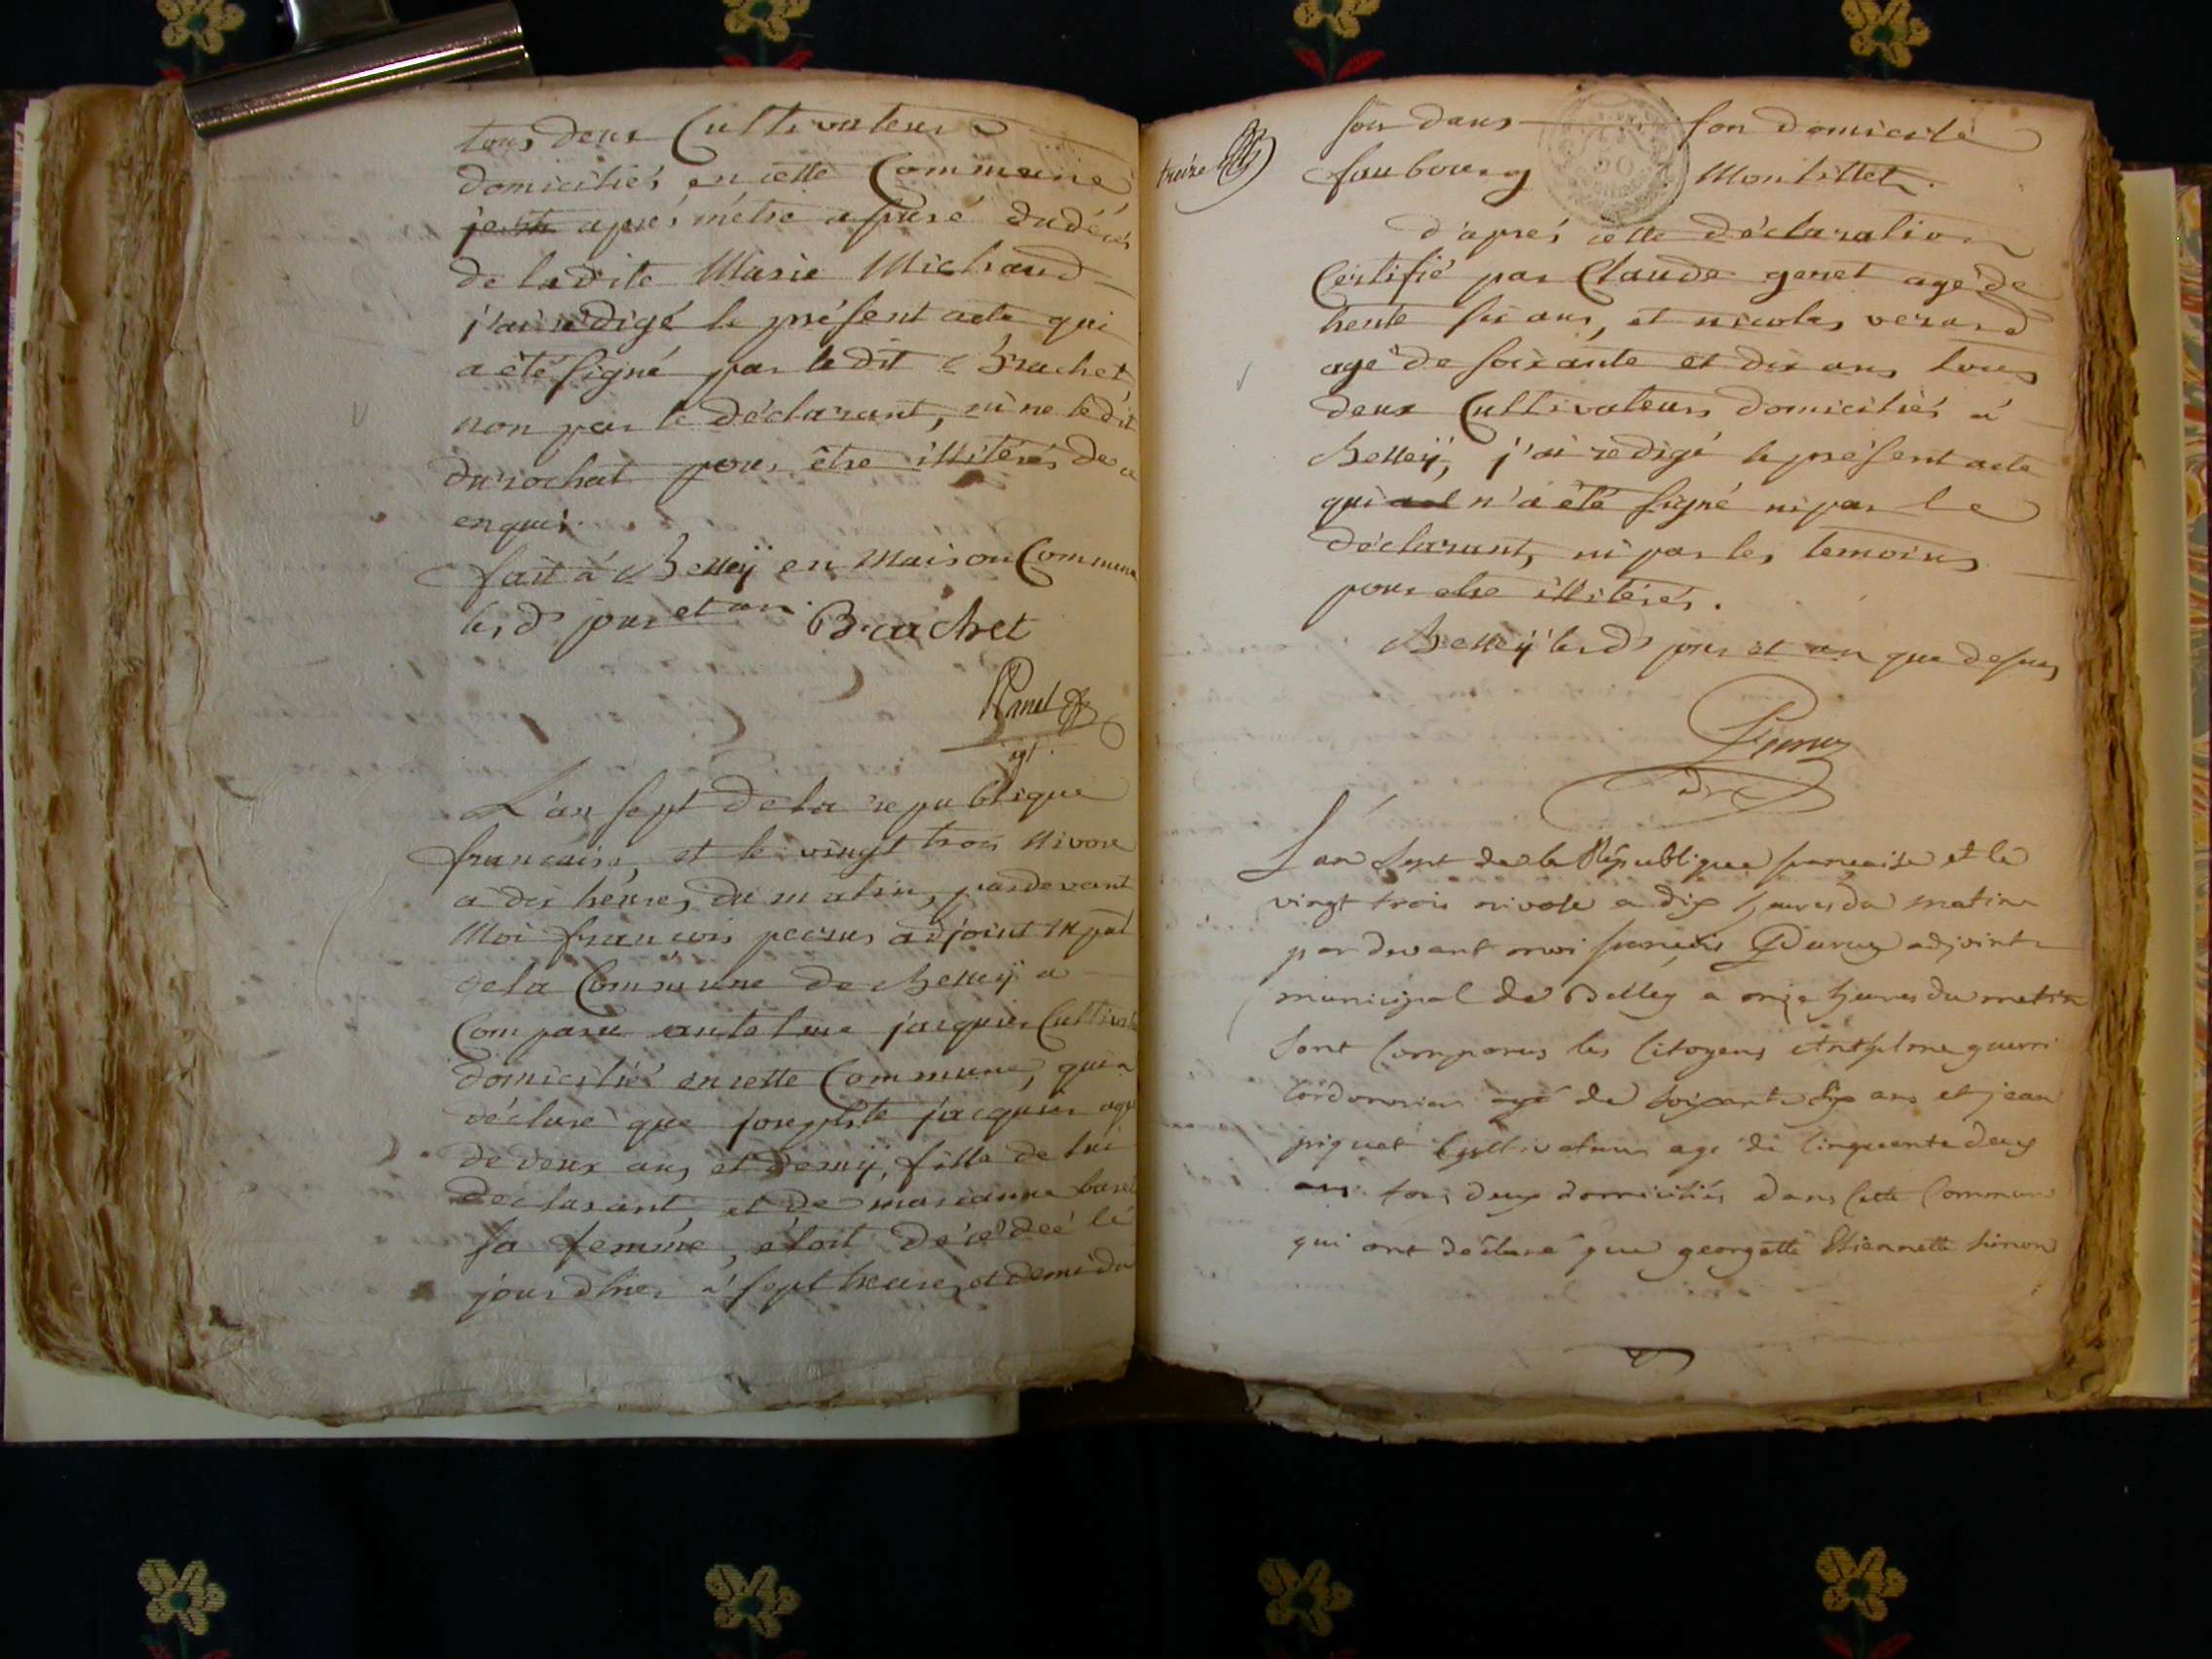 tous deux Cultivateurs
domiciliés en cette Commune
apres m'etre assuré du décès
de la dite Marie Michaud
j'ai redigé le présent acte qui
a été signé par le dit Brachet
non par le déclarant, ni ne le dit
durochat pour être illitérés de ce
enquis.
fait à Belleÿ en Maison Commune
les d. jour et an.
Brachet
L'an sept de la republique
francaise, et le vingt trois Nivose
a dix heures du matin, pardevant
Moi francois adjoint Mpal
de la Commune de Belleÿ a
Comparu antelme jacquier Cultivat
domicilié en cette Commune, qui a
déclaré que josephte jacquier agé
de deux ans et demÿ, fille de lui
déclarant, et de marianne
sa femme, étoit décédeé le
jour d'hier a sept heures et demi du
treize
soir dans son domicile
faubourg Montillet.
d'aprés cette déclaration
Certifié par Claude genet agé de
trente six ans, et nicolas verard
agé de soixante et dix ans tous
deux Cultivateurs domiciliés à
Belleÿ, j'ai redigé le présent acte
qui n'a été signé ni par le
déclarant, ni par les temoins
pour etre illitérés.
Belleÿ les d. jour et an que dessus
L'an Sept de la République française et le
vingt trois nivose a dix heures du matin
par devant moi françois adjoint
municipal de Belley a onze heures du matin
Sont Comparus les Citoyens Anthelme guerri
Cordonnier agé de soixante six ans et jean
piquet Cultivateur agé de Cinquante deux
ans tous deux domiciliés dans Cette Commune
qui ont déclaré que georgette Etiennette Simon